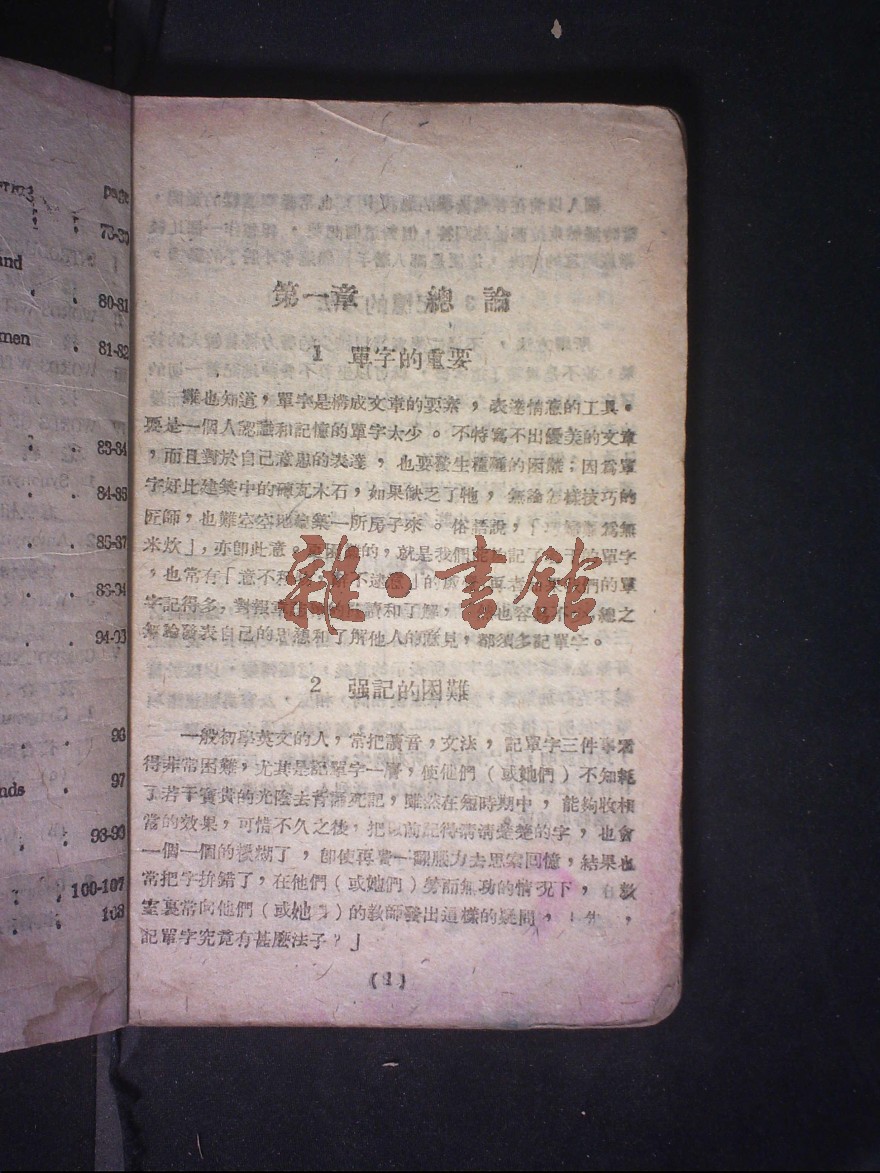 page
73-80
and
80-81
men
81-82
83-84
84-85
85-87
94-95
96
nds
97
98-99
100-107
108
第一章 總論
1 單字的重要
誰也知道，單字是構成文章的要素，表達情意的工具。
要是一個人認識和記憶的單字太少。不特寫不出優美的文章
，而且對於自己意思的表達，也要發生種種的困難；因爲單
字好比建築中的磚瓦木石，如果缺乏了牠，無論怎樣技巧的
匠師，也難空空地建築一所房子來。俗語說，「
爲無
米炊」，亦卽此意。
的，就是我們
記了
的單字
，也常有「意不
」的
我們的單
字記得多，對
閱讀和了解，
也容
總之
無論發表自己的思想和了解他人的意見，都須多記單字。
2 强記的困難
一般初學英文的人，常把讀音，文法，記單字三件事看
得非常困難，尤其是記單字一層，使他們（或她們）不知耗
了若干寶貴的光陰去背誦死記，雖然在短時期中，能夠收相
當的效果，可惜不久之後，把以前記得清清楚楚的字，也會
一個一個的模糊了，卽使再費一翻腦力去思索回憶，結果也
常把字拚錯了，在他們（或她們）勞而無功的情况下，在教
室裏常向他們（或她們）的教師發出這樣的疑問，「先，
記單字究竟有甚麽法子？」
(1)
雜·書館